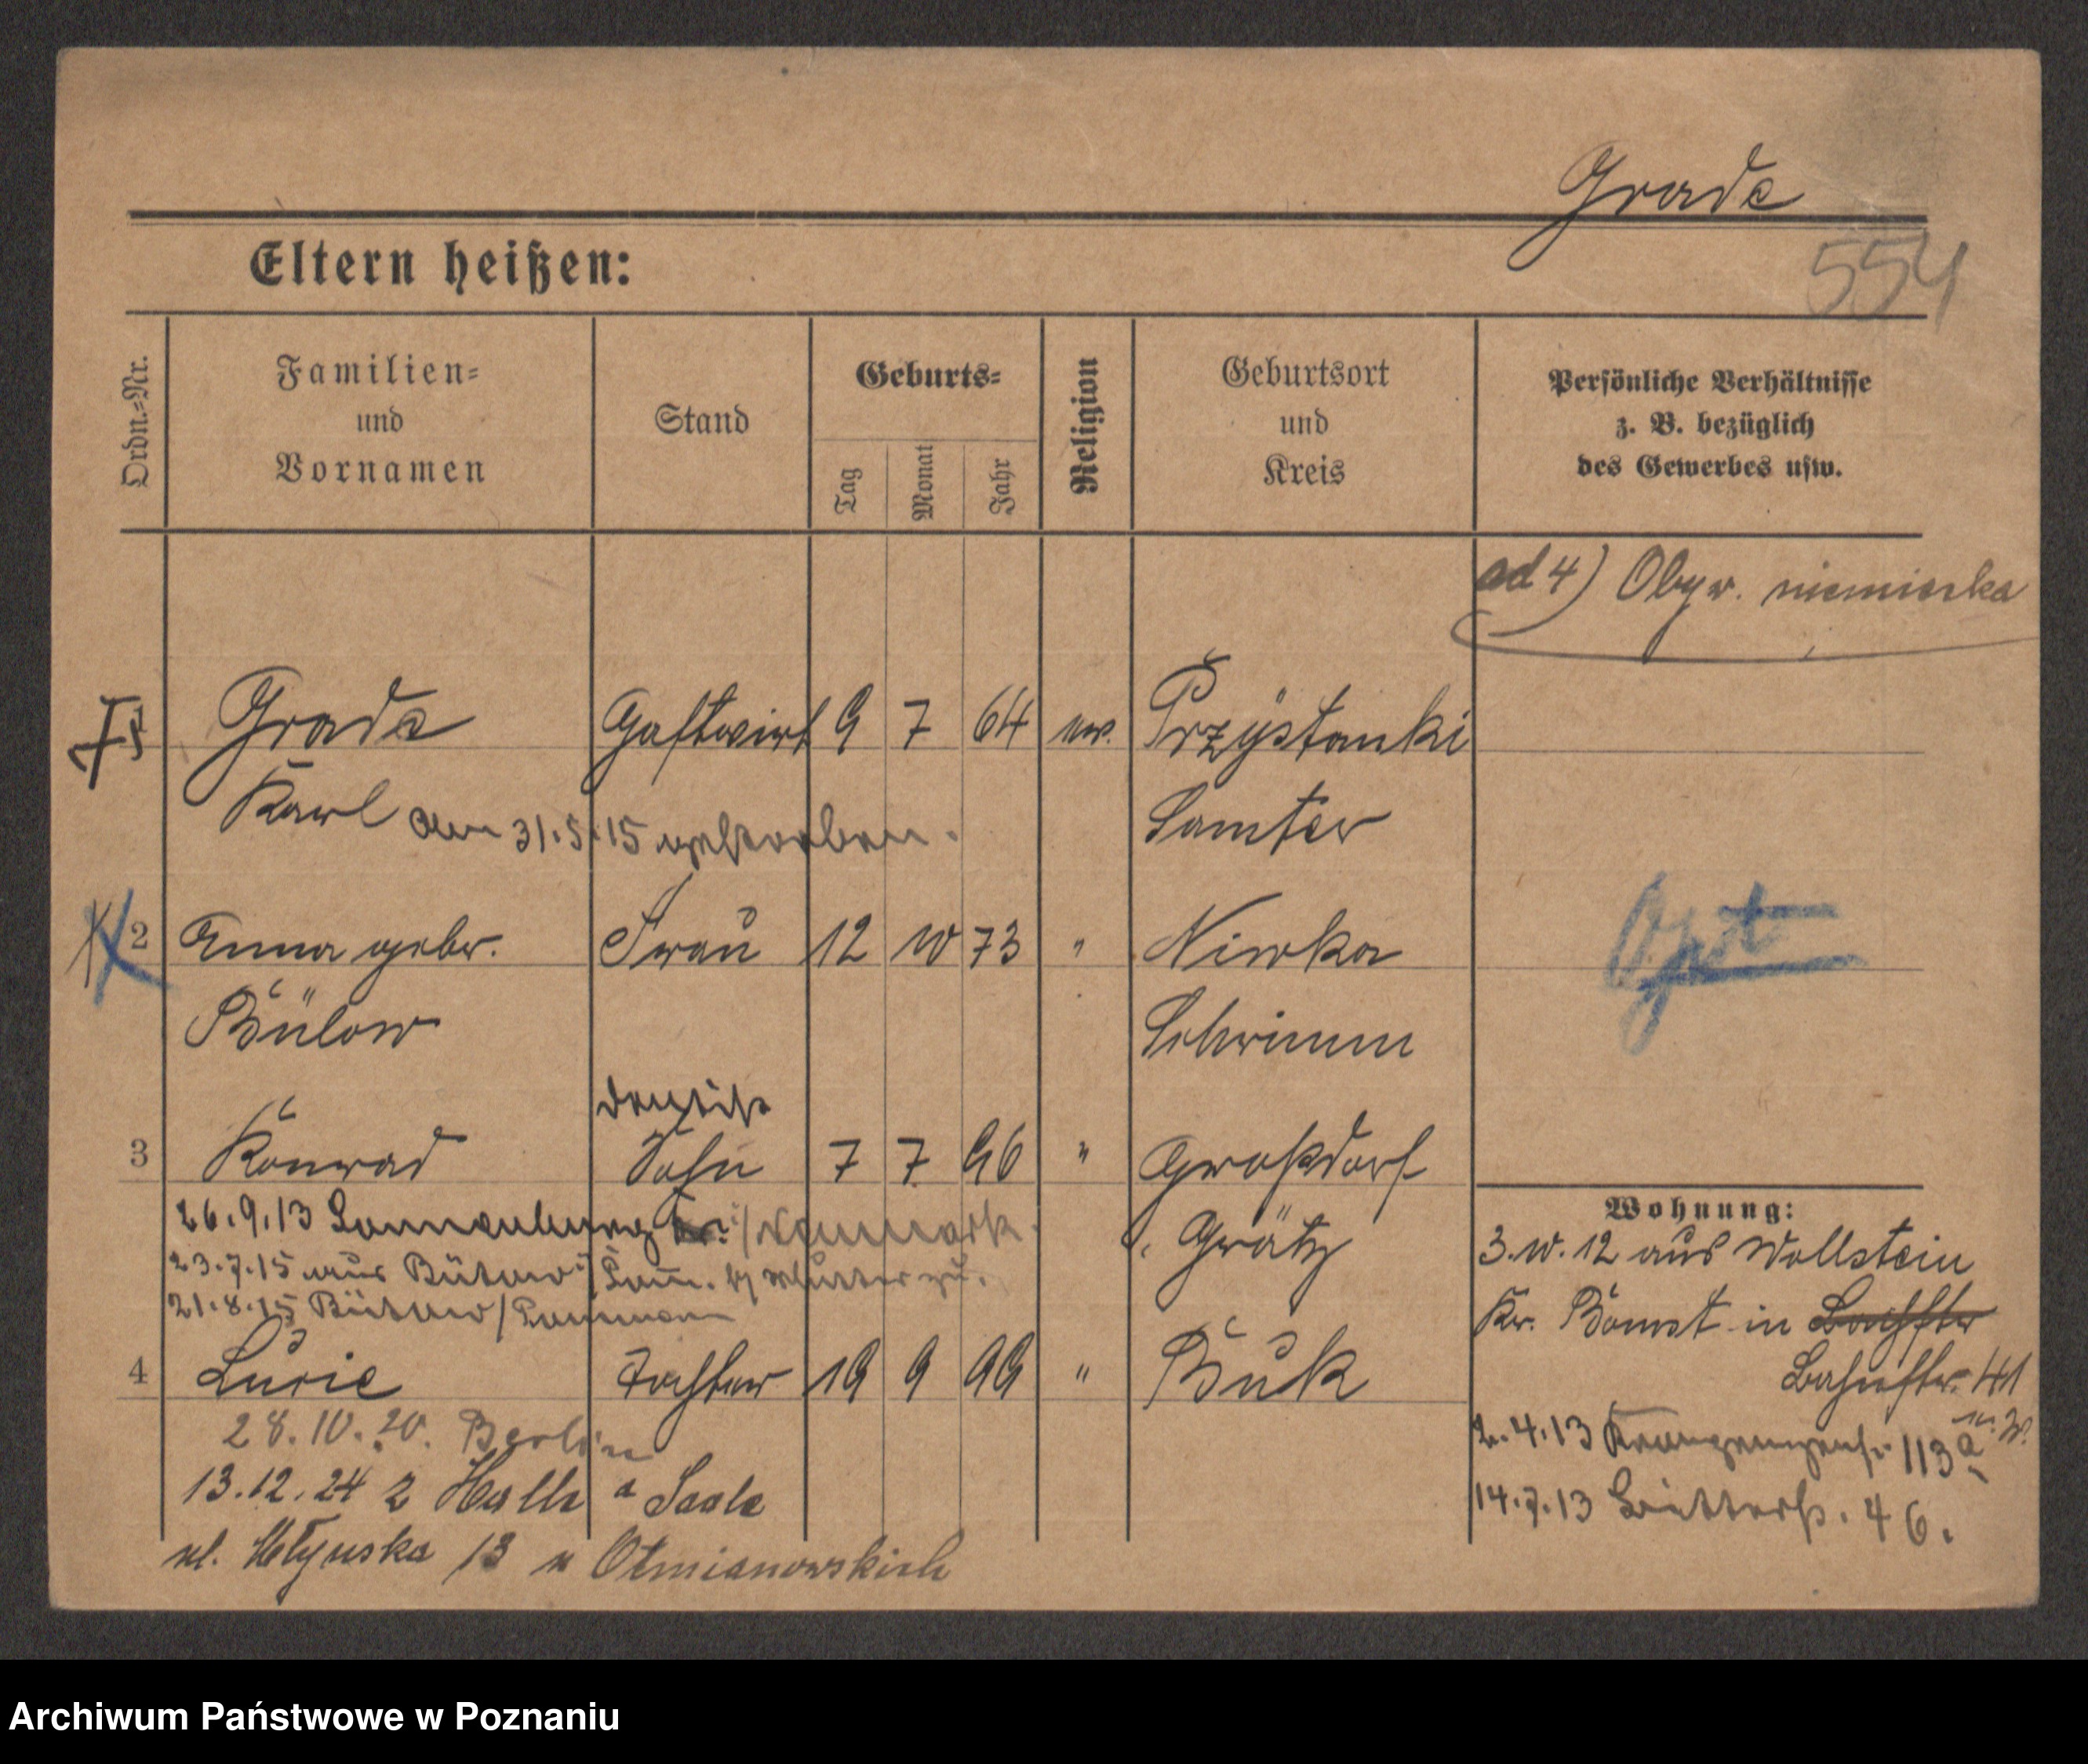 Grade
554
Eltern heißen:
Ordn.-Nr.
Familien=
und
Vornamen
Stand
Geburts=
Tag
Monat
Jahr
Religion
Geburtsort
und
Kreis
Persönliche Verhältnisse
z. B. bezüglich
des Gewerbes usw.
ad 4) Obyw. niemiecka
1 Grade Gastwirt 9 7 64 ev. Przystanki
Karl am 31.5.15 gestorben. Samter
2 Anna gebor. Frau 12 10 73 " Niwka
Opt
Bülow Schrimm
3 Konrad Sohn 7 7 96 " Großdorf
26.9.13 Sonnenburg /Neumark.
Grätz
23.7.15 aus Bütow i/Pom. Mutter zu.
21.8.15 Bütow/Pommern
4 Lucie Tochter 19 9 99 " Buk
28.10.20. Berlin
13.12.24 z Halle a Saale
ul. Młyńska 13 u Otmianowskich
Wohnung:
3.10.12 aus Wollstein
Kr. Bomst in
41
2.4.13 113a
14.7.13 Ritterst. 46.
Archiwum Państwowe w Poznaniu